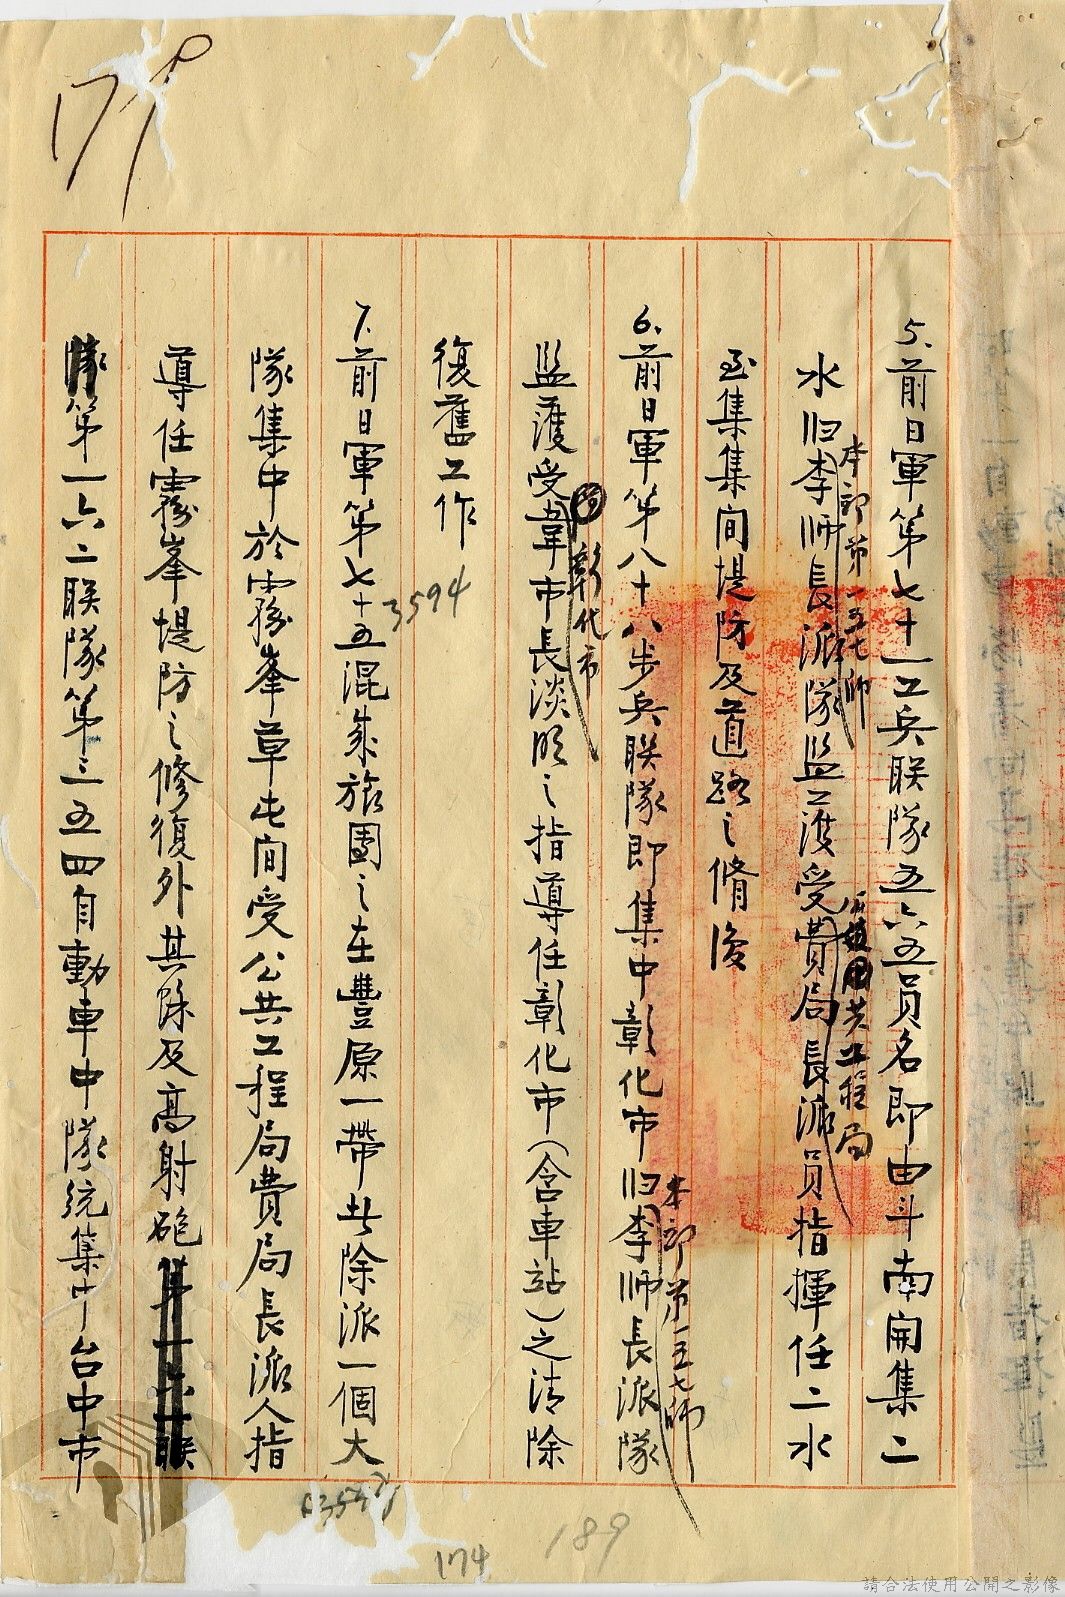 179
5.前日軍第七十一工兵联隊五六五員名即由斗南開集二
本部第一五七師
水归李师長派隊監護受費局長派員指揮任二水
公共工程局
至集集间堤防及道路之脩復
6.前日軍第八十八步兵联隊即集中彰化市归李师長派隊
本部第一五七师
監護受韋市長淡明之指導任彰化市(含車站)之清除
彰化市
復舊工作
3594
7.前日軍第七十五混成旅團之在豐原一帶者除派一個大
隊集中於霧峯草屯间受公共工程局費局長派人指
導任霧峯堤防之修復外其餘及高射砲
第一六二联隊第三五四自動車中隊統集中台中市
174
189
請合法使用公開之影像